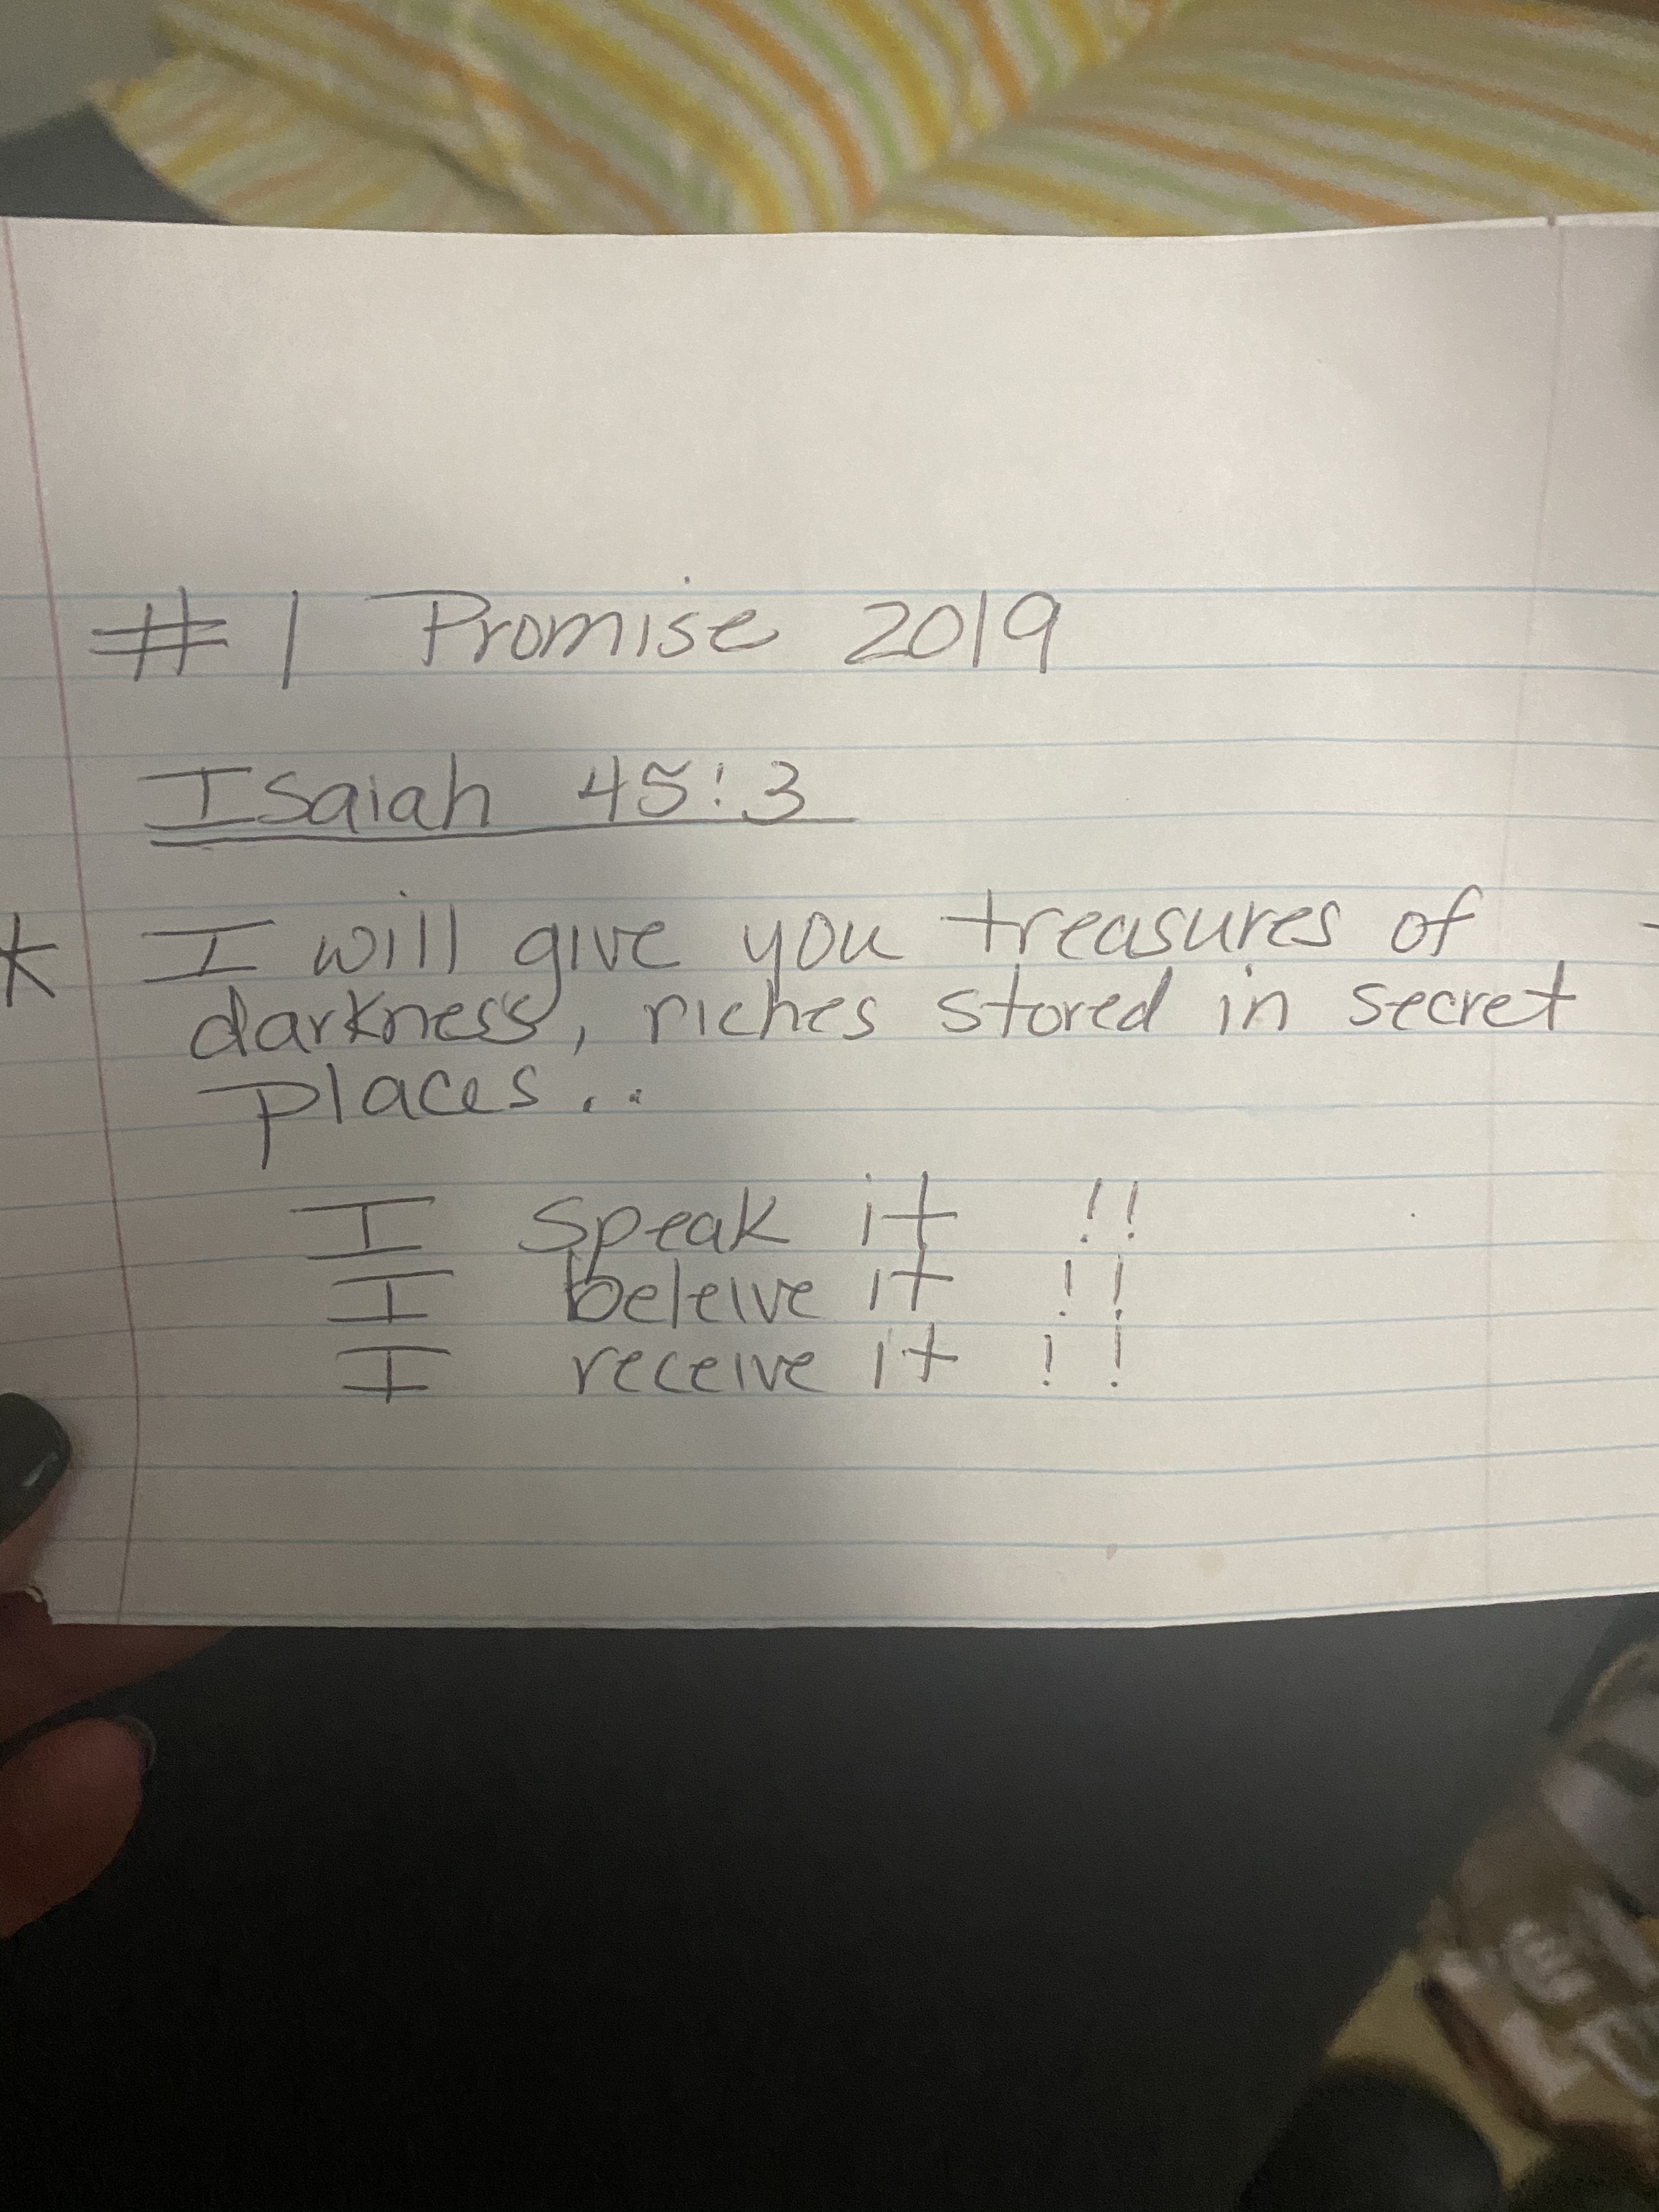 # 1 Promise 2019
Isaiah 45:3
* I will give you treasures of
darkness, riches stored in secret
places..
I speak it !!
I beleive it !!
I receive it !!